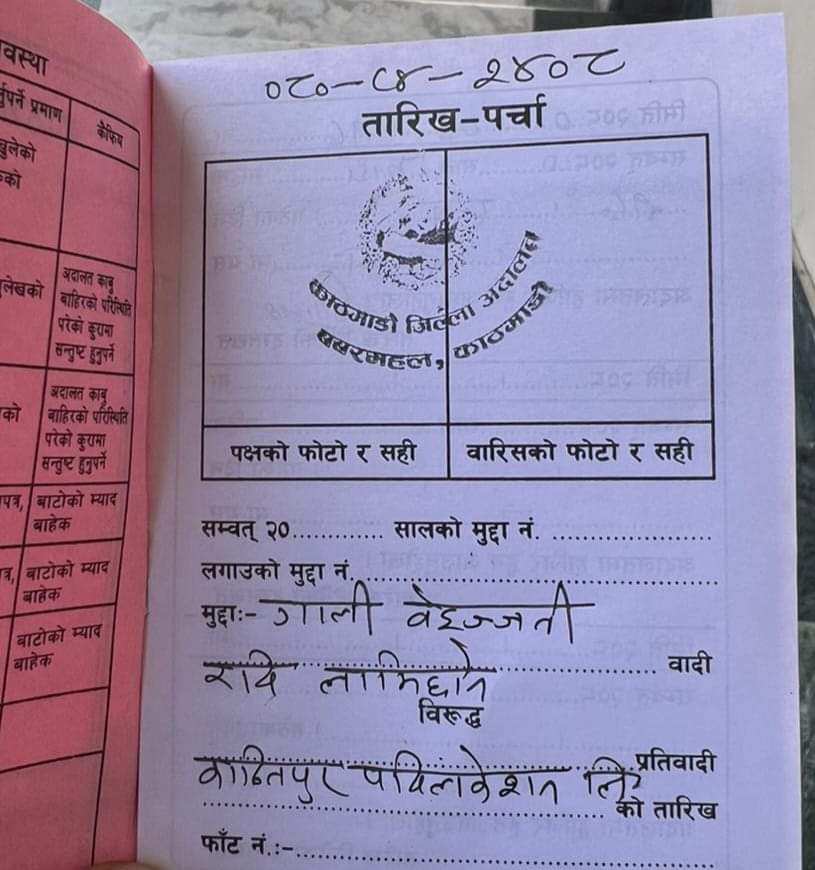 वस्था
र्नुपर्ने प्रमाण
कैफियत
खुलेको
को
लेखको
अदालत काबु
बाहिरको परिस्थिति
परेको कुरामा
सन्तुष्ट हुनुपर्ने
को
अदालत काबु
बाहिरको परिस्थिति
परेको कुरामा
सन्तुष्ट हुनुपर्ने
पत्र, बाटोको म्याद
बाहेक
त्र, बाटोको म्याद
बाहेक
बाटोको म्याद
बाहेक
०८०-C४-२४०८
तारिख-पर्चा
काठमाडौं जिल्ला अदालत
बबरमहल, काठमाडौं
पक्षको फोटो र सही
वारिसको फोटो र सही
सम्वत् २०............. सालको मुद्दा नं. ......................
लगाउको मुद्दा नं. ..................................................
मुद्दाः- गाली वेइज्जती
रवि लामिछाने ...................... वादी
विरूद्ध
कान्तिपुर पब्लिकेशन लि. प्रतिवादी
...................................................... को तारिख
फाँट नं.:-......................................................